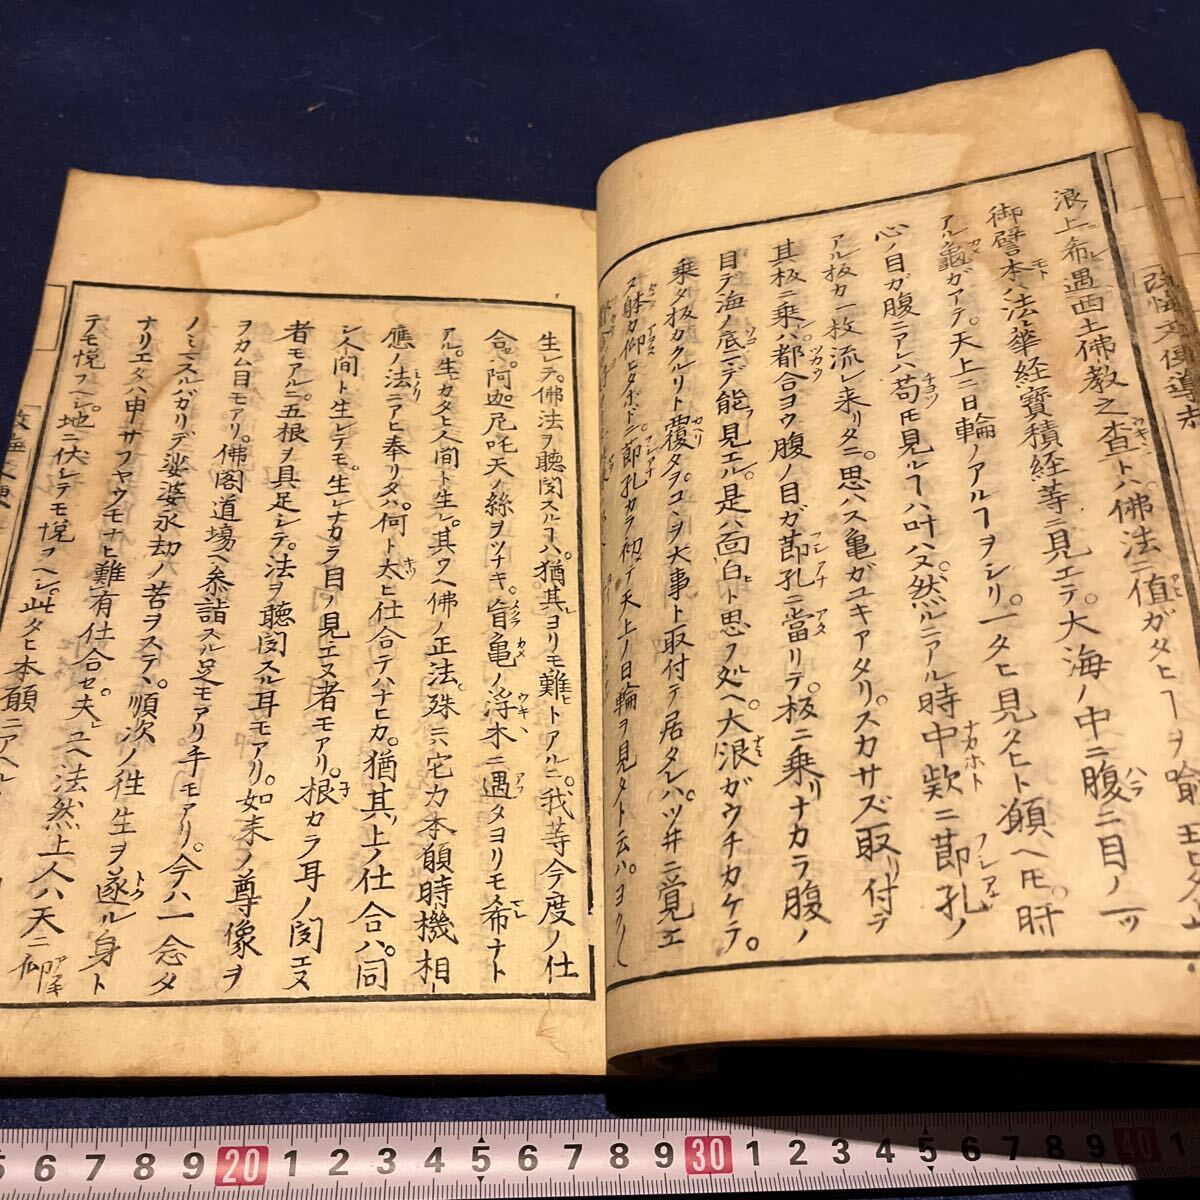 浪上希遇西土佛教之査トハ佛法ニ値ガタヒヿヲ喩
御譬本ハ法華経寳積経等ニ見エテ大海ノ中ニ腹ニ目ノ一ッ
アル龜ガアテ天上ニ日輪ノアルヿヲシリ一タヒ見タヒト願ヘ𪜈肝
心ノ目ガ腹ニアレハ苟モ見ルヿハ叶ハヌ然ルニアル時中歎ニ莭孔ノ
アル板カ一枚流レ来リタニ思ハス亀ガユキアタリスカサズ取リ付テ
其板ニ乗レハ都合ヨウ腹ノ目ガ莭孔ニ當リテ板ニ乗リナカラ腹ノ
目テ海ノ底ニデ能見エル是ハ面白ト思フ処ヘ大浪ガウチカケテ
乗タ板カクルリト覆タコヽヲ大事ト取付テ居タレハツ井ニ覚エ
ス躰カ仰ヒタホドニ莭孔カラ初テ天上ノ日輪ヲ見タト云ハヨク〱
生レテ佛法ヲ聴聞スルヿハ猶其ヨリモ難トアルニ我等今度ノ仕
合ハ阿迦尼吒天ノ絲ヲツナキ盲亀ノ浮木ニ遇タヨリモ希ナト
アル生カタヒ人間ト生レ其ウヘ佛ノ正法殊ニハ宅力本願時機相
應ノ法ニアヒ奉リタハ何ト太ヒ仕合テハナヒカ猶其上ノ仕合ハ同
シ人間ト生レテモ生レナカラ目ノ見エヌ者モアリ根カラ耳ノ聞エヌ
者モアルニ五根ヲ具足シテ法ヲ聴聞スル耳モアリ如来ノ尊像ヲ
ヲカム目モアリ佛閣道場ヘ参詣スル足モアリ手モアリ今ハ一念タ
ノミスルバカリデ娑婆永劫ノ苦ヲステヽ順次ノ徃生ヲ遂ル身ト
ナリエタハ申サフヤウモナヒ難有仕合セ夫ユヘ法然上人ハ天ニ仰
テモ悦フヘシ地ニ伏シテモ悦フヘシ此タヒ本願ニアヘル
5 6 7 8 9 20 1 2 3 4 5 6 7 8 9 30 1 2 3 4 5 6 7 8 9 40